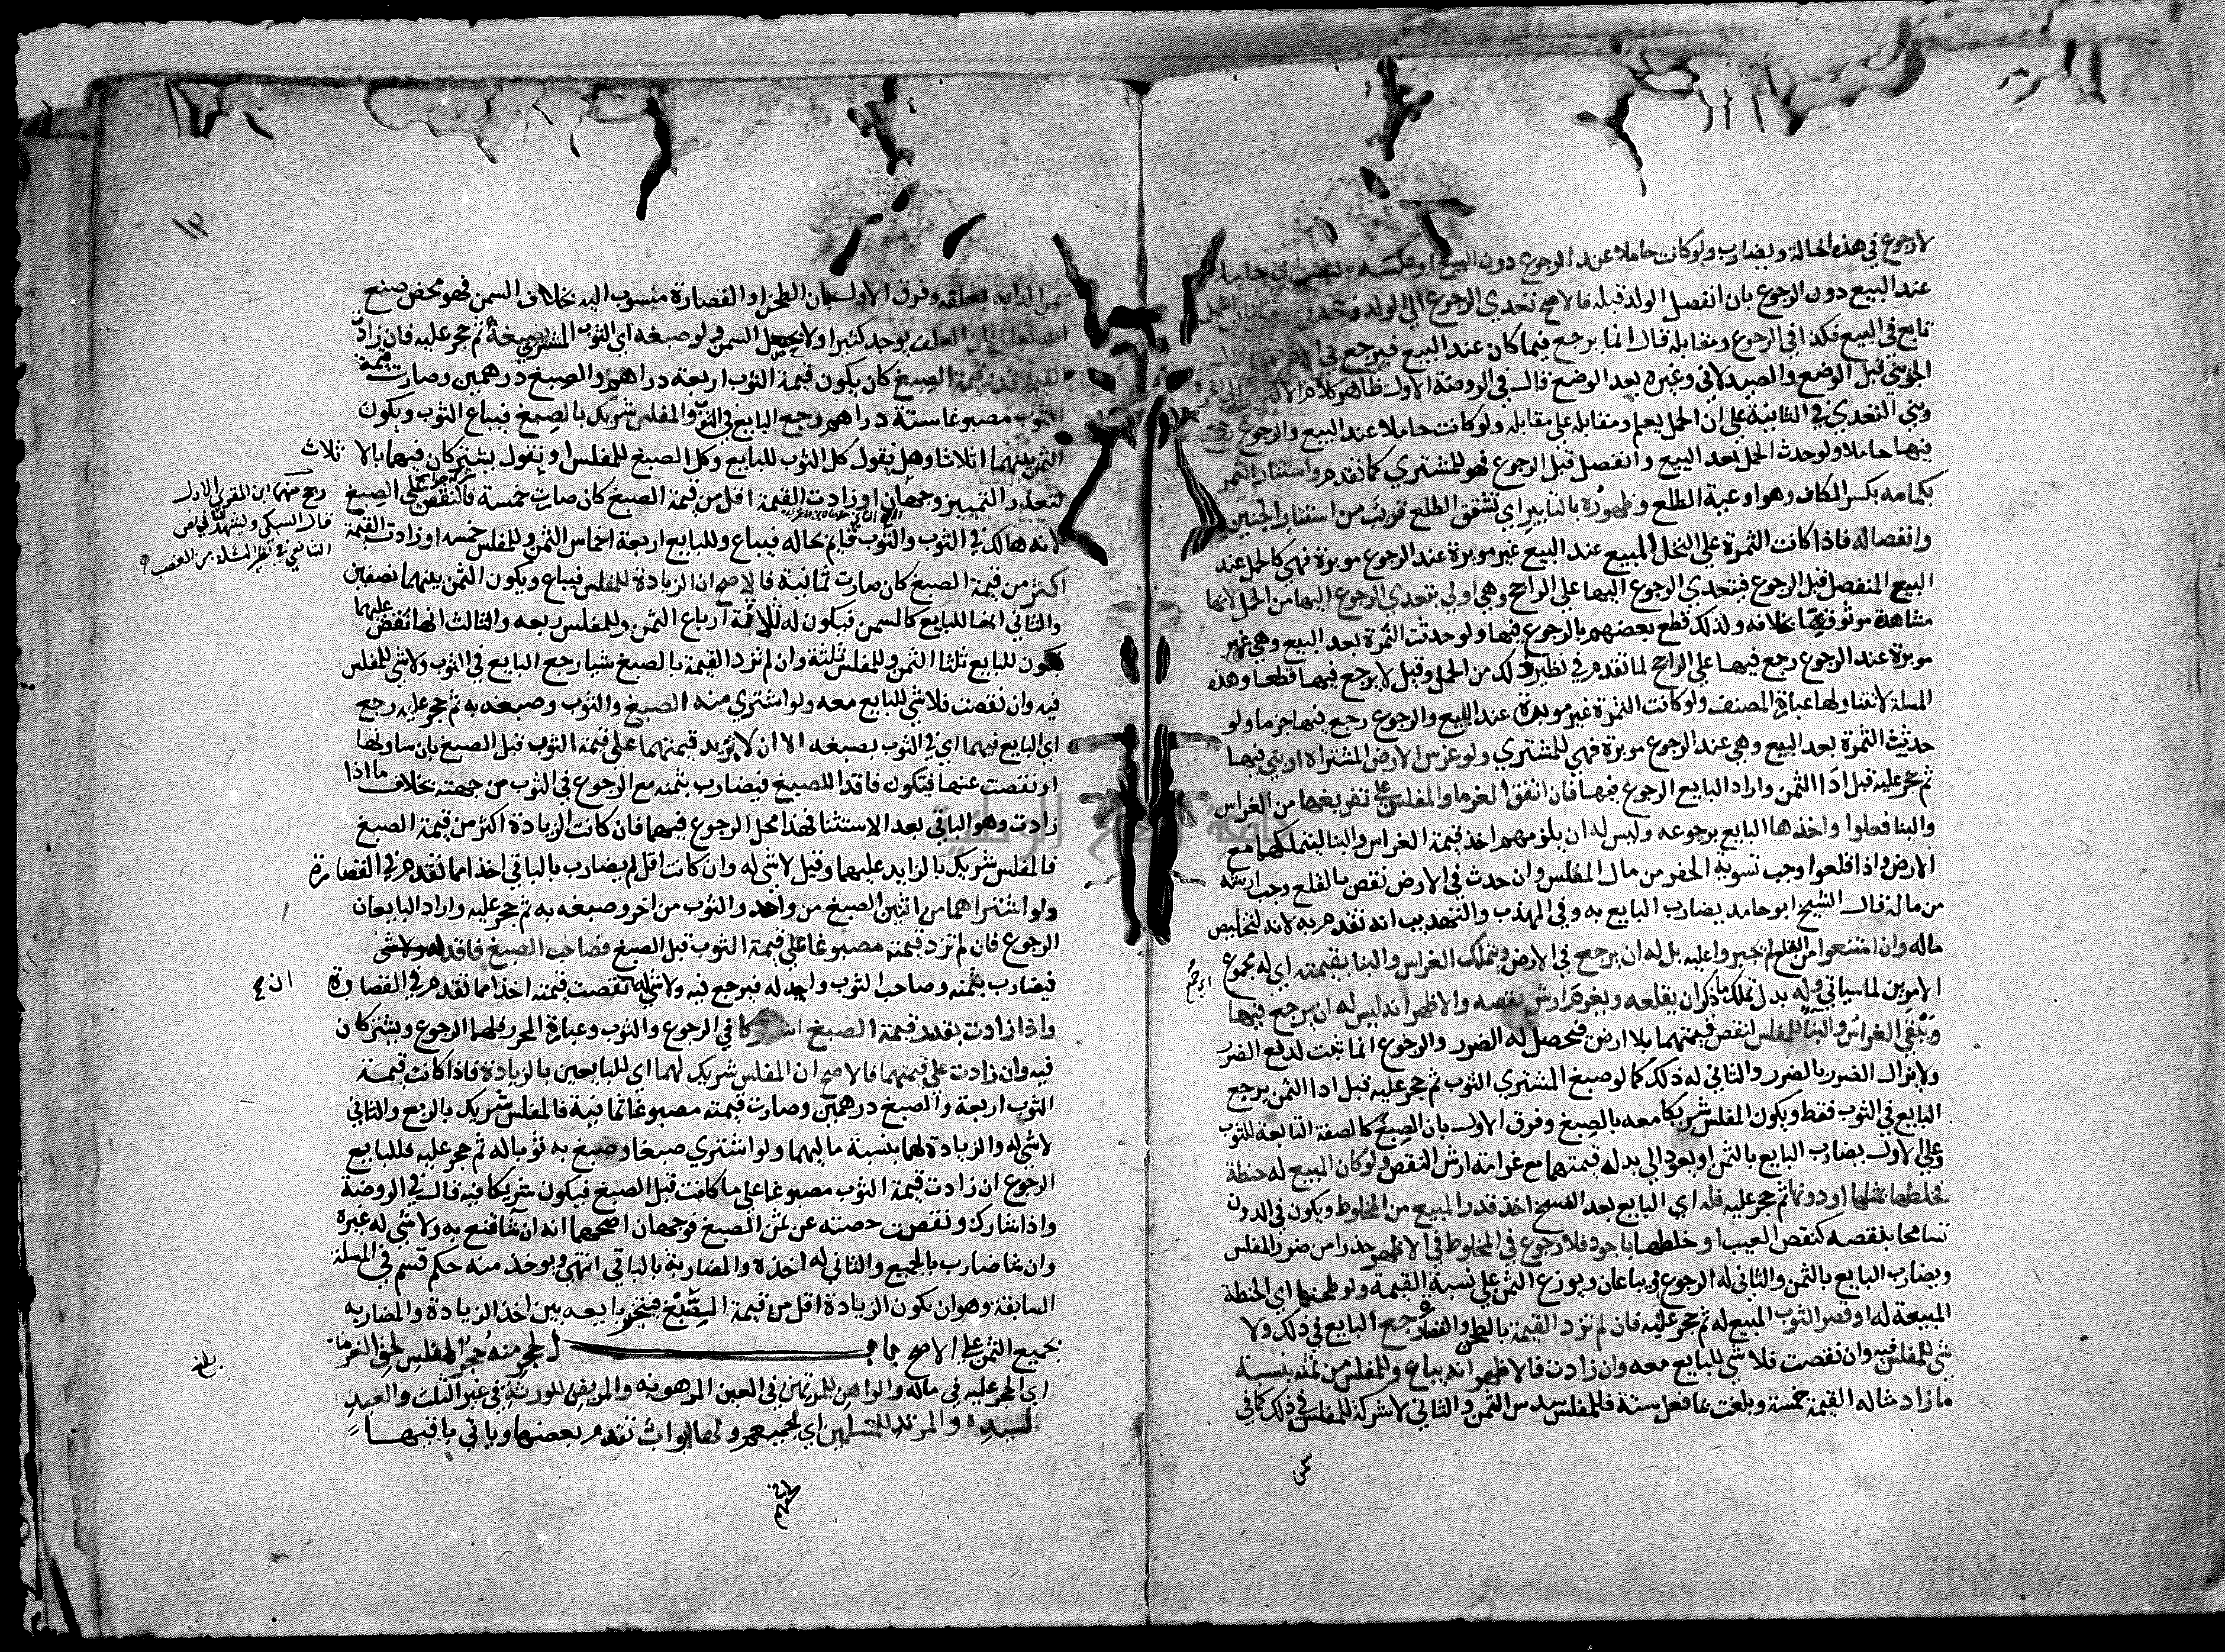 لا رجوع في هذه الحالة ويضارب ولو كانت حاملا عند الرجوع دون البيع او عكسه بان كانت حاملا
عند البيع دون الرجوع بان انفصل الولد قبله فالاصح تعدي الرجوع الي الولد وجه
تابع في البيع فكذا في الرجوع ومقابله قال انما يرجع فيما كان عند البيع فيرجع في
الجويني قبل الوضع والصيدلاني وغيره بعد الوضع قال في الروضة الاول ظاهر كلام الاكثرين
وبني التعدي في الثانية علي ان الحمل يعلم ومقابله علي مقابله ولو كانت حاملا عند البيع والرجوع رجع
فيها حاملا ولو حدث الحمل بعد البيع وانفصل قبل الرجوع فهو للمشتري كما تقدم واستتار الثمر
بكمامه بكسر الكاف وهو اوعية الطلع وظهوره بالتابير اي تشقق الطلع قريب من استتار الجنين
وانفصاله فاذا كانت الثمرة علي النخل المبيع عند البيع غير موبرة وعند الرجوع موبرة فهي كالحمل عند
البيع المنفصل قبل الرجوع فيتعدي الرجوع اليها علي الراجح وهي اولي بتعدي الرجوع اليها من الحمل لانها
مشاهدة موثوق بها بخلافه ولذلك قطع بعضهم بالرجوع فيها ولو حدثت الثمرة بعد البيع وهي غير
موبرة عند الرجوع رجع فيها علي الراجح لما تقدم في نظير ذلك من الحمل وقيل لا يرجع فيها قطعا وهذه
المسلة لا تتناولها عبارة المصنف ولو كانت الثمرة غير موبرة عند البيع والرجوع رجع فيها جزما ولو
حدثت الثمرة بعد البيع وهي عند الرجوع موبرة فهي للمشتري ولو غرس الارض المشتراة او بني فيها
ثم حجر عليه قبل ادا الثمن واراد البايع الرجوع فيها فان اتفق الغرما والمفلس علي تفريغها من الغراس
والبنا فعلوا واخذها البايع برجوعه وليس له ان يلزمهم اخذ قيمة الغراس والبنا ليتملكهما مع
الارض واذا قلعوا وجب تسوية الحفر من مال المفلس وان حدث في الارض نقص بالقلع وجب ارشه
من ماله قال الشيخ ابو حامد يضارب البايع به وفي المهذب والتهذيب انه تقدم به لانه لتخليص
ماله وان امتنعوا من القلع لم يجبروا عليه بل له ان يرجع في الارض ويتملك الغراس والبنا بقيمته اي له مجموع
الامرين لما سياتي وله بدل تملك ما ذكر ان يقلعه ويغرم ارش نقصه والاظهر انه ليس له ان يرجع فيها
ويبقي الغراس والبنا للمفلس لنقص قيمتهما بلا ارض فيحصل له الضرر والرجوع انما ثبت لدفع الضرر
ولا يزال الضرر بالضرر والثاني له ذلك كما لو صبغ المشتري الثوب ثم حجر عليه قبل ادا الثمن يرجع
البايع في الثوب فقط ويكون المفلس شريكا معه بالصبغ وفرق الاول بان الصبغ كالصفة التابعة للثوب
وعلي الاول يضارب البايع بالثمن او يعود الي بدله قيمتهما مع غرامة ارش النقص ولو كان المبيع له حنطة
فخلطها بمثلها او دونها ثم حجر عليه فله اي البايع بعد الفسخ اخذ قدر المبيع من المخلوط ويكون في الدون
تسامحا بنقصه كنقص العيب او خلطها باجود فلا رجوع في المخلوط في الاظهر حذرا من ضرر المفلس
ويضارب البايع بالثمن والثاني له الرجوع فيباعان ويوزع الثمن علي نسبة القيمة ولو طحنها اي الحنطة
المبيعة له او قصر الثوب المبيع له ثم حجر عليه فان لم تزد القيمة بالطحن والقصارة رجع البايع في ذلك ولا
شي للمفلس فيه وان نقصت فلا شي للبايع معه وان زادت فالاظهر انه يباع وللمفلس من ثمنه بنسبة
ما زاد مثاله القيمة خمسة وبلغت بما فعل ستة فللمفلس سدس الثمن والثاني لا شركة للمفلس في ذلك كما في
سمن
سمن الدابة بعلفه وفرق الاول بان الطحن او القصارة منسوب اليه بخلاف السمن فهو محض صنع
الله تعالي فان العلف يوجد كثيرا ولا يحصل السمن ولو صبغه اي الثوب المشتري بصبغه ثم حجر عليه فان زادت
القيمة قدر قيمة الصبغ كان يكون قيمة الثوب اربعة دراهم والصبغ درهمين وصارت قيمة
الثوب مصبوغا ستة دراهم رجع البايع في الثوب والمفلس شريك بالصبغ فيباع الثوب ويكون
الثمن بينهما اثلاثا وهل يقول كل الثوب للبايع وكل الصبغ للمفلس او يقول يشتركان فيهما بالاثلاث
لتعذر التمييز وجهان او زادت القيمة اقل من قيمة الصبغ كان صارت خمسة فالنقص علي الصبغ
رجح منهما ابن المقري الاول
قال السبكي ويشهد له نص
الشافعي في نظير المسلة من الغصب
لانه هالك في الثوب والثوب قايم بحاله فيباع وللبايع اربعة اخماس الثمن وللمفلس خمسه او زادت القيمة
اكثر من قيمة الصبغ كان صارت ثمانية فالاصح ان الزيادة للمفلس فيباع ويكون الثمن بينهما نصفين
والثاني انها للبايع كالسمن فيكون له ثلاثة ارباع الثمن وللمفلس ربعه والثالث انها تفض عليهما
فيكون للبايع ثلثا الثمن وللمفلس ثلثه وان لم تزد القيمة بالصبغ شيا رجع البايع في الثوب ولا شي للمفلس
فيه وان نقصت فلا شي للبايع معه ولو اشتري منه الصبغ والثوب وصبغه به ثم حجر عليه رجع
اي البايع فيهما اي في الثوب بصبغه الا ان لا يزيد قيمتهما علي قيمة الثوب قبل الصبغ بان ساوتها
او نقصت عنها فيكون فاقدا للصبغ فيضارب بثمنه مع الرجوع في الثوب من جهته بخلاف ما اذا
زادت وهو الباقي بعد الاستثنا فهذا محل الرجوع فيهما فان كانت الزيادة اكثر من قيمة الصبغ
فالمفلس شريك بالزايد عليهما وقيل لا شي له وان كانت اقل لم يضارب بالباقي اخذا مما تقدم في القصارة
ولو اشتراهما من اثنين الصبغ من واحد والثوب من اخر وصبغه به ثم حجر عليه واراد البايعان
الرجوع فان لم تزد قيمته مصبوغا علي قيمة الثوب قبل الصبغ فصاحب الصبغ فاقد له
فيضارب بثمنه وصاحب الثوب واجد له فيرجع فيه ولا شي له ان نقصت قيمته اخذا مما تقدم في القصارة
واذا زادت بقدر قيمة الصبغ اشتركا في الرجوع والثوب وعبارة المحرر فلهما الرجوع ويشتركان
فيه وان زادت علي قيمتهما فالاصح ان المفلس شريك لهما اي للبايعين بالزيادة فاذا كانت قيمة
الثوب اربعة والصبغ درهمين وصارت قيمته مصبوغا ثمانية فالمفلس شريك بالربع والثاني
لا شي له والزيادة لهما بنسبة ماليهما ولو اشتري صبغا وصبغ به ثوبا له ثم حجر عليه فللبايع
الرجوع ان زادت قيمة الثوب مصبوغا علي ما كانت قبل الصبغ فيكون شريكا فيه قال في الروضة
واذا شارك ونقصت حصته عن ثمن الصبغ فوجهان اصحهما انه ان شا قنع به ولا شي له غيره
وان شا ضارب بالجميع والثاني له اخذه والمضاربة بالباقي انتهي ويوخذ منه حكم قسم في المسلة
السابقة وهو ان يكون الزيادة اقل من قيمة الصبغ فيتخير بايعه بين اخذ الزيادة والمضاربة
بجميع الثمن علي الاصح باب الحجر منه حجر المفلس لحق الغرما
اي الحجر عليه في ماله والراهن للمرتهن في العين المرهونة والمريض للورثة في غير الثلث والعبد
لسيده والمرتد للمسلمين اي لحقهم ولها ابواب تقدم بعضها وياتي باقيها